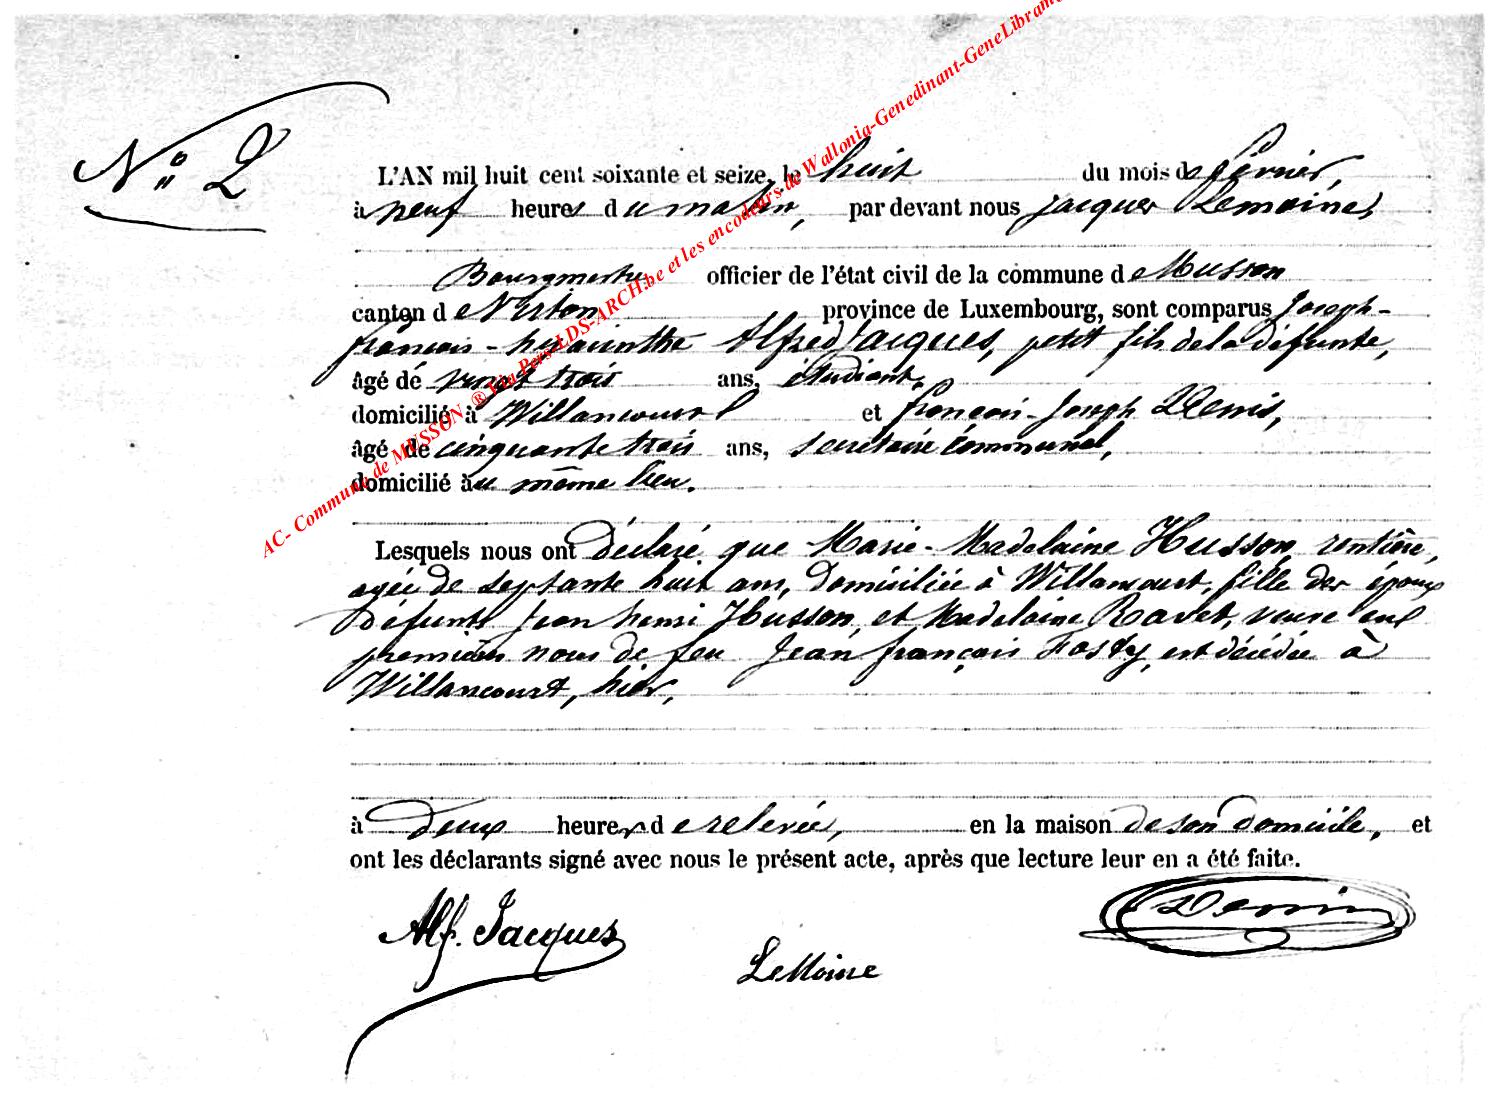 N° 2
L'AN mil huit cent soixante et seize, le huit du mois de février,
à neuf heures du matin, par devant nous Jacques Lemoine,
Bourgmestre officier de l'état civil de la commune de Musson
canton de Virton province de Luxembourg, sont comparus Joseph-
françois-hyacinthe Alfred Jacques, petit fils de la défunte,
âgé de vingt trois ans, étudiant,
domicilié à Willancourt et françois-Joseph Denis,
âgé de cinquante trois ans, secrétaire communal,
domicilié au même lieu.
Lesquels nous ont déclaré que Marie-Madelaine Husson, rentière,
agée de septante huit ans, domiciliée à Willancourt, fille des époux
défunts Jean henri Husson, et Madelaine Ravet, veuve en
premières noces de feu Jean françois Fosty, est décédée à
Willancourt, hier,
à deux heures de relevée, en la maison de son domicile, et
ont les déclarants signé avec nous le présent acte, après que lecture leur en a été faite.
Alf. Jacques
LeMoine
Denis
AC- Commune de MUSSON ® Via Pers-LDS-ARCH.be et les encodeurs de Wallonia-Genedinant-GeneLibram